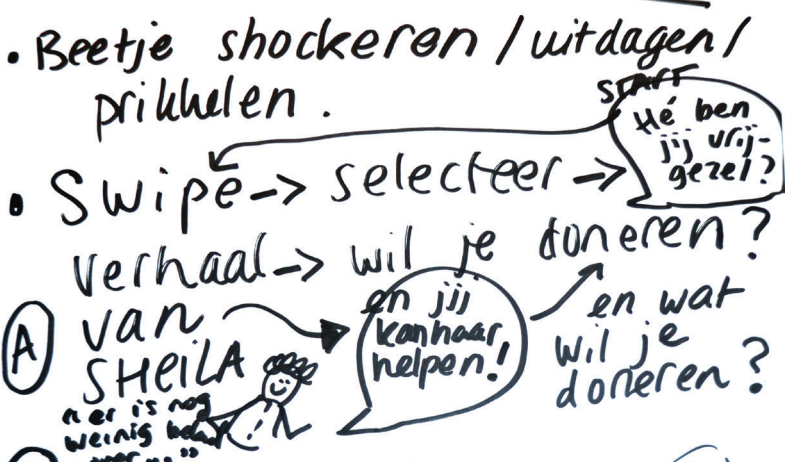 • Beetje shockeren / uitdagen /
prikkelen.
START
Hé ben
jij vrij-
gezel?
• Swipe -> selecteer ->
verhaal -> wil je doneren?
A van
SHEILA
en jij
kan haar
helpen!
en wat
wil je
doneren?
"er is nog
weinig